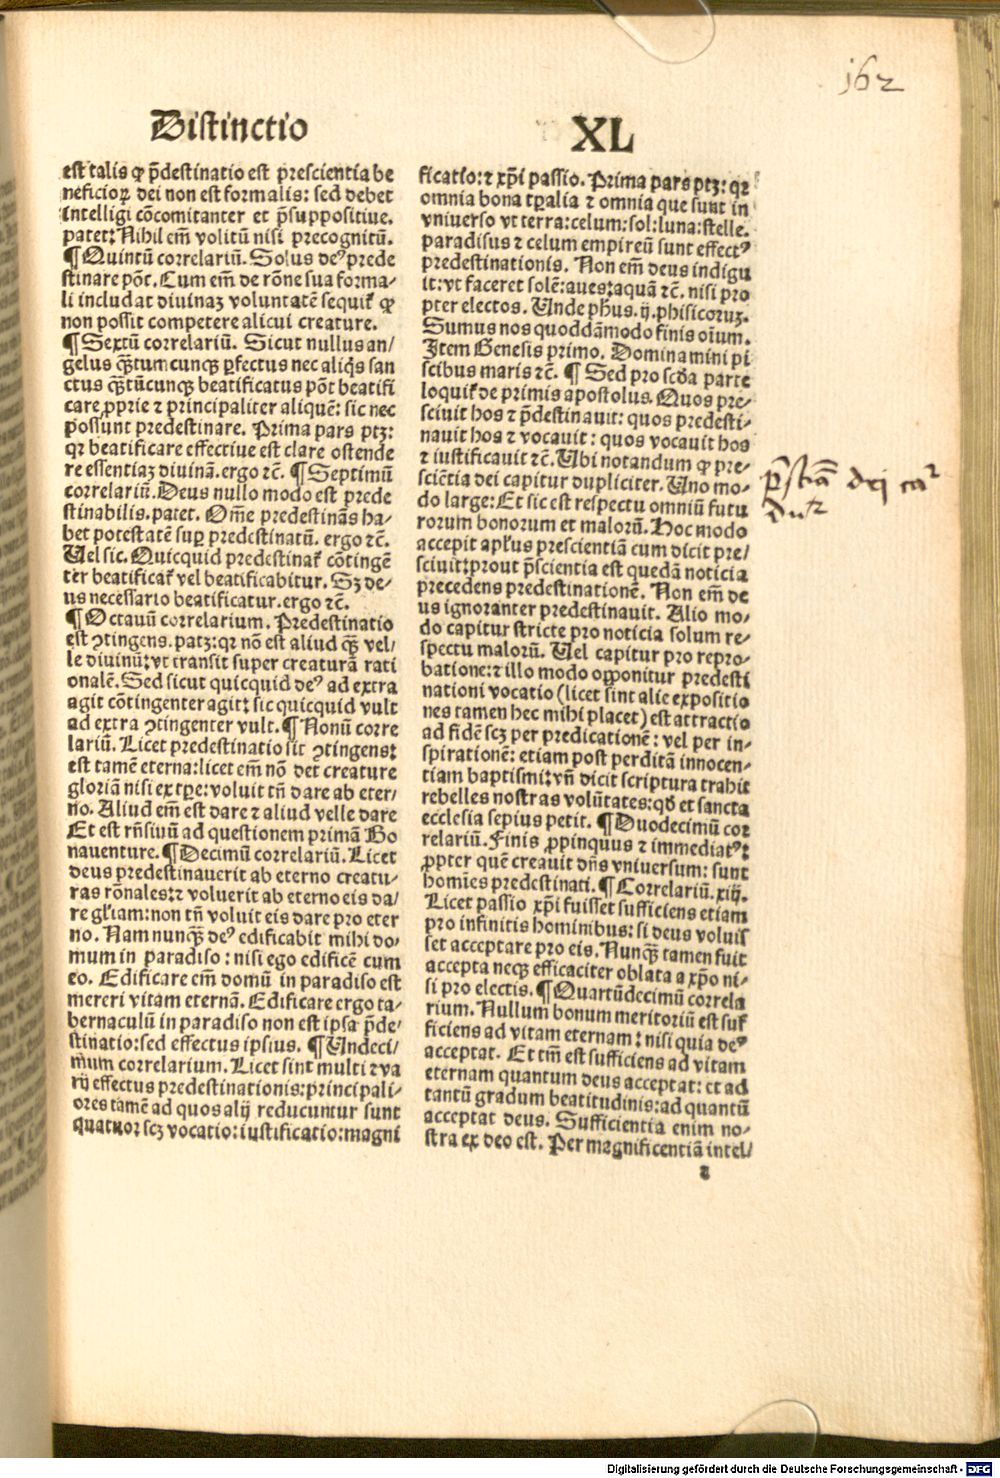 162
Distinctio
XL
est talis ꝙ p̄destinatio est prescientia be
neficioꝝ dei non est formalis: sed debet
intelligi cōcomitanter et p̄suppositiue.
patet: Nihil em̄ volitū nisi precognitū.
¶ Quintū correlariū. Solus deꝰ prede
stinare pōt. Cum em̄ de rōne sua forma⸗
li includat diuinaꝫ voluntatē sequiť ꝙ
non possit competere alicui creature.
¶ Sextū correlariū. Sicut nullus an⸗
gelus qȝ̄tumcunqꝫ ꝑfectus nec aliq̇s san
ctus qȝ̄tūcunqꝫ beatificatus pōt beatifi
care ꝓprie ⁊ principaliter aliquē: sic nec
possunt predestinare. Prima pars ptꝫ:
qꝛ beatificare effectiue est clare ostende
re essentiaꝫ diuinā. ergo ⁊c̄. ¶ Septimū
correlariū. Deus nullo modo est prede
stinabilis. patet. Om̄e predestinās ha⸗
bet potestatē suꝑ predestinatū. ergo ⁊c̄.
Uel sic. Quicquid predestinať cōtingē
ter beatificať vel beatificabitur. Sꝫ de⸗
us necessario beatificatur. ergo ⁊c̄.
¶ Octauū correlarium. Predestinatio
est ꝯtingens. patꝫ: qꝛ nō est aliud qȝ̄ vel⸗
le diuinū: vt transit super creaturā rati
onalē. Sed sicut quicquid deꝰ ad extra
agit cōtingenter agit: sic quicquid vult
ad extra ꝯtingenter vult. ¶ Nonū corre
lariū. Licet predestinatio sit ꝯtingens:
est tamē eterna: licet em̄ nō det creature
gloriā nisi ex tꝑe: voluit tn̄ dare ab eter⸗
no. Aliud em̄ est dare ⁊ aliud velle dare
Et est rn̄siuū ad questionem primā Bo
nauenture. ¶ Decimū correlariū. Licet
deus predestinauerit ab eterno creatu⸗
ras rōnales: ⁊ voluerit ab eterno eis da⸗
re gl̄iam: non tn̄ voluit eis dare pro eter
no. Nam nunqȝ̄ deꝰ edificabit mihi do⸗
mum in paradiso: nisi ego edificē cum
eo. Edificare em̄ domū in paradiso est
mereri vitam eternā. Edificare ergo ta⸗
bernaculū in paradiso non est ipsa p̄de⸗
stinatio: sed effectus ipsius. ¶ Undeci⸗
mum correlarium. Licet sint multi ⁊ va
rij effectus predestinationis: principali⸗
ores tamē ad quos alij reducuntur sunt
quatuor scꝫ vocatio: iustificatio: magni
ficatio: ⁊ xp̄i passio. Prima pars ptꝫ: qꝛ
omnia bona tꝑalia ⁊ omnia que sunt in
vniuerso vt terra: celum: sol: luna: stelle.
paradisus ⁊ celum empireū sunt effectꝰ
predestinationis. Non em̄ deus indigu
it: vt faceret solē: aues: aquā ⁊c̄. nisi pro
pter electos. Unde ph̄us. ij. phisicoruꝫ.
Sumus nos quoddāmodo finis oīum.
Item Genesis primo. Dominamini pi
scibus maris ⁊c̄. ¶ Sed pro scd̄a parte
loquiť de primis apostolus. Quos pre⸗
sciuit hos ⁊ p̄destinauit: quos predesti⸗
nauit hos ⁊ vocauit: quos vocauit hos
⁊ iustificauit ⁊c̄. Ubi notandum ꝙ pre⸗
sciētia dei capitur dupliciter. Uno mo⸗
do large: Et sic est respectu omniū futu
rorum bonorum et malorū. Hoc modo
accepit apl̄us prescientiā cum dicit pre⸗
sciuit: prout p̄scientia est quedā noticia
precedens predestinationē. Non em̄ de
us ignoranter predestinauit. Alio mo⸗
do capitur stricte pro noticia solum re⸗
spectu malorū. Uel capitur pro repro⸗
batione: ⁊ illo modo opponitur predesti
nationi vocatio (licet sint alie expositio
nes tamen hec mihi placet) est attractio
ad fidē scꝫ per predicationē: vel per in⸗
spirationē: etiam post perditā innocen⸗
tiam baptismi: vn̄ dicit scriptura trahit
rebelles nostras volūtates: qd̄ et sancta
ecclesia sepius petit. ¶ Duodecimū cor
relariū. Finis ꝓpinquus ⁊ immediatꝰ:
ꝓpter quē creauit dn̄s vniuersum: sunt
homīes predestinati. ¶ Correlariū. xiij.
Licet passio xp̄i fuisset sufficiens etiam
pro infinitis hominibus: si deus voluis
set acceptare pro eis. Nunqȝ̄ tamen fuit
accepta neqꝫ efficaciter oblata a xp̄o ni⸗
si pro electis. ¶ Quartūdecimū correla
rium. Nullum bonum meritoriū est suf
ficiens ad vitam eternam: nisi quia deꝰ
acceptat. Et tm̄ est sufficiens ad vitam
eternam quantum deus acceptat: et ad
tantū gradum beatitudinis: ad quantū
acceptat deus. Sufficientia enim no⸗
stra ex deo est. Per magnificentiā intel⸗
Digitalisierung gefördert durch die Deutsche Forschungsgemeinschaft - DFG